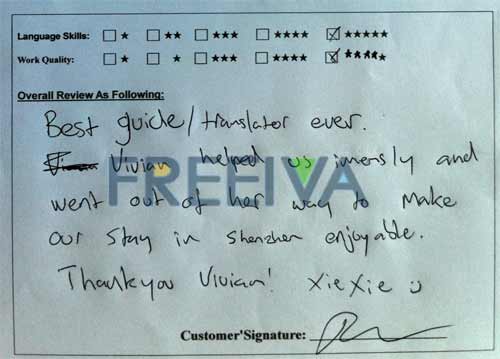 Language Skills: ☐ ★ ☐ ★★ ☐ ★★★ ☐ ★★★★ ☑ ★★★★★
Work Quality: ☐ ★ ☐ ★ ☐ ★★★ ☐ ★★★★ ☑ ★★★★★
Overall Review As Following:
Best guide/translator ever.
Vivian helped us imersly and
FREEIVA
went out of her way to make
our stay in Shenzhen enjoyable.
Thankyou Vivian! XieXie
Customer'Signature: